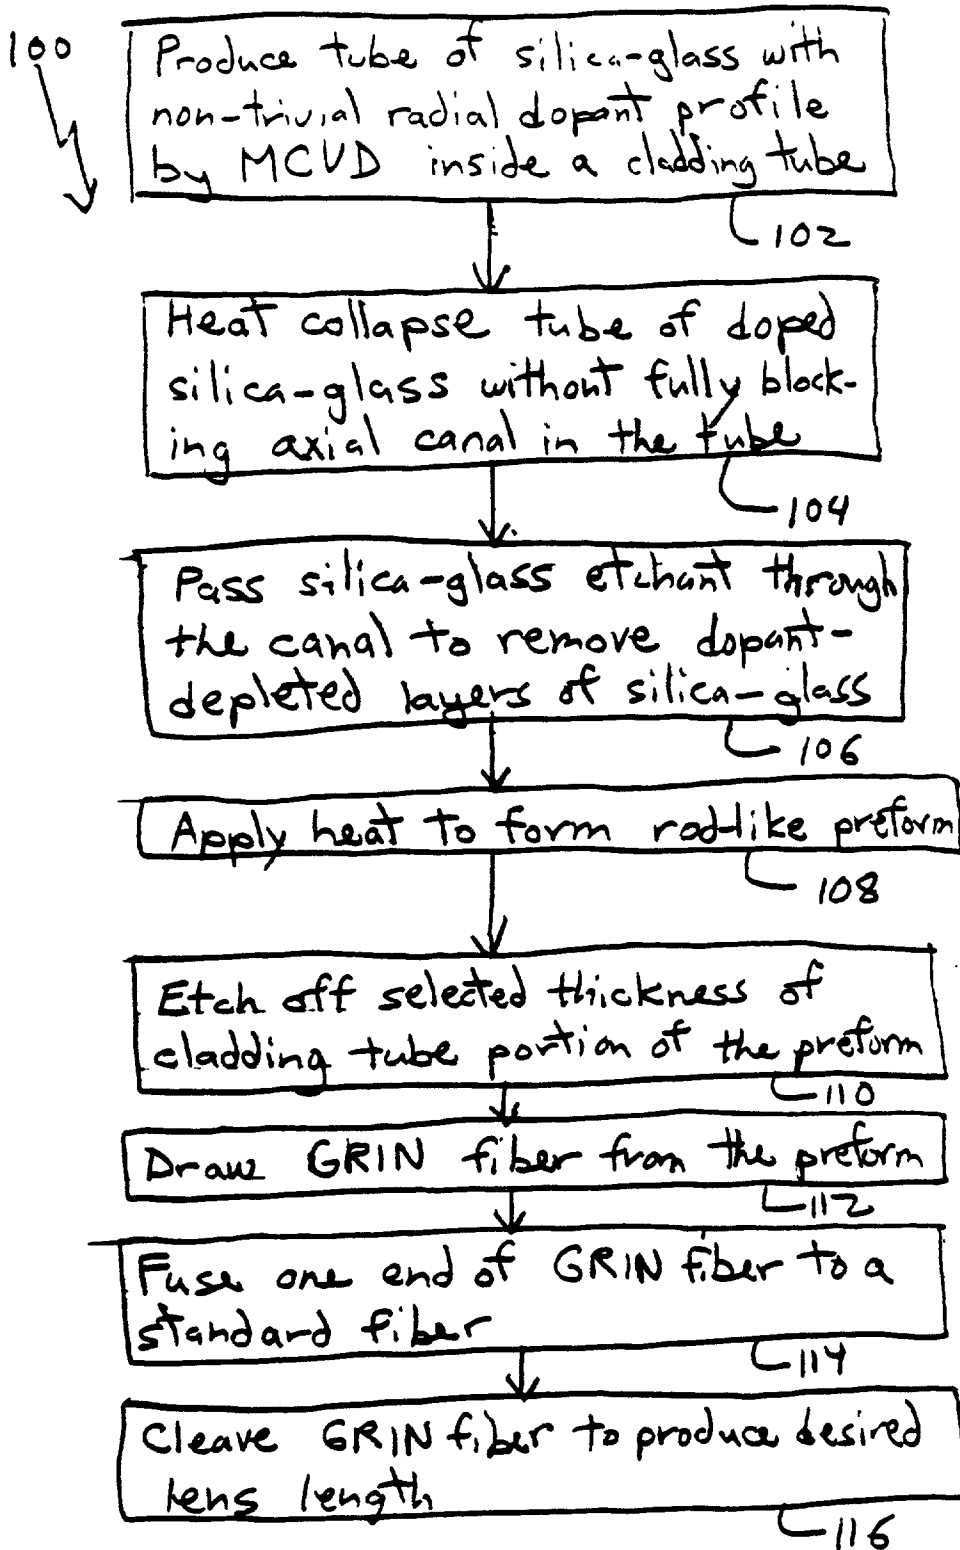 100
Produce tube of silica-glass with
non-trivial radial dopant profile
by MCVD inside a cladding tube
102
Heat collapse tube of doped
silica-glass without fully block-
ing axial canal in the tube
104
Pass silica-glass etchant through
the canal to remove dopant-
depleted layers of silica-glass
106
Apply heat to form rod-like preform
108
Etch off selected thickness of
cladding tube portion of the preform
110
Draw GRIN fiber from the preform
112
Fuse one end of GRIN fiber to a
standard fiber
114
Cleave GRIN fiber to produce desired
lens length
116